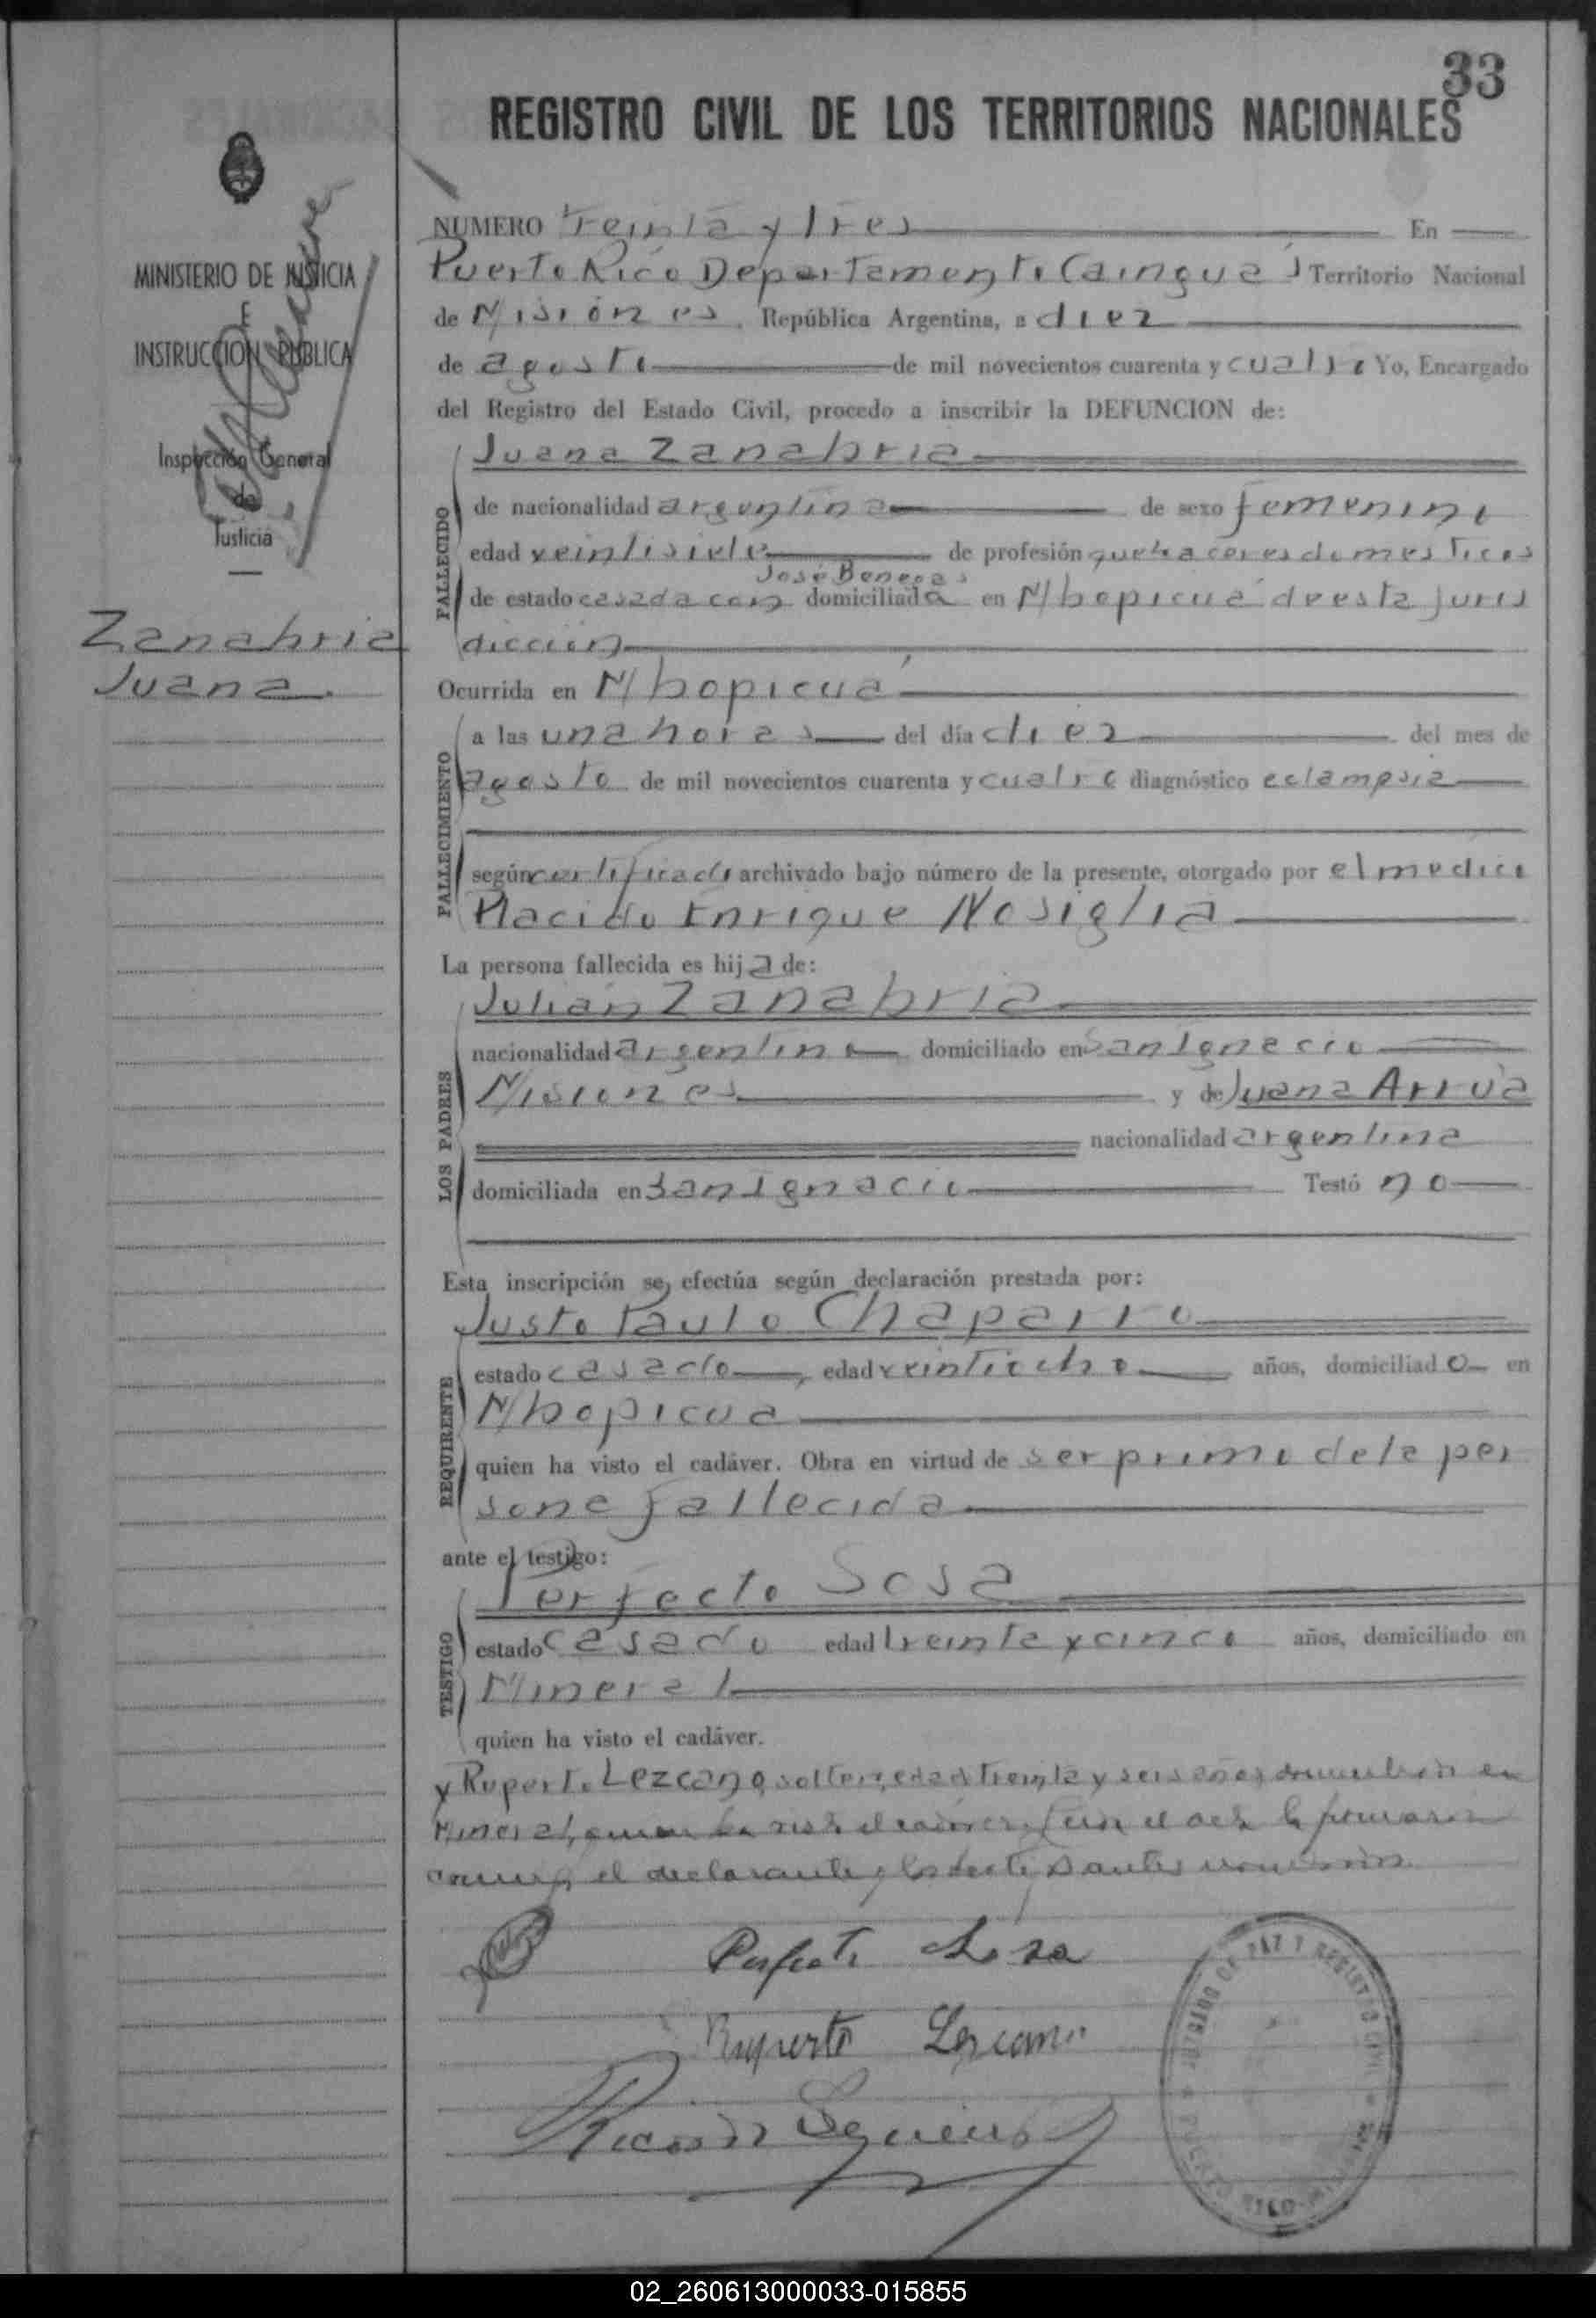 33
REGISTRO CIVIL DE LOS TERRITORIOS NACIONALES
MINISTERIO DE JUSTICIA
E
INSTRUCCION PUBLICA
Inspección General
de
Justicia
Zanabria
Juana.
NUMERO treinta y tres En
Puerto Rico Departamento Cainguá Territorio Nacional
de Misiones, República Argentina, a diez
de agosto de mil novecientos cuarenta y cuatro Yo, Encargado
del Registro del Estado Civil, procedo a inscribir la DEFUNCION de:
FALLECIDO
Juana Zanabria
de nacionalidad argentina de sexo femenino
edad veintisiete de profesión quehaceres domesticos
José Benegas
de estado casada con domiciliada en Mbopicuá de esta juris
dicción
Ocurrida en Mbopicuá
FALLECIMIENTO
a las una horas del día diez del mes de
agosto de mil novecientos cuarenta y cuatro diagnóstico eclampsia
según certificado archivado bajo número de la presente, otorgado por el medico
Placido Enrique Nosiglia
La persona fallecida es hija de:
LOS PADRES
Julián Zanabria
nacionalidad argentino domiciliado en San Ignacio
Misiones y de Juana Arrúa
nacionalidad argentina
domiciliada en San Ignacio Testó no
Esta inscripción se efectúa según declaración prestada por:
REQUIRENTE
Justo Paulo Chaparro
estado casado, edad veintiocho años, domiciliado en
Mbopicua
quien ha visto el cadáver. Obra en virtud de ser primo de la per
sona fallecida
ante el testigo:
TESTIGO
Perfecto Sosa
estado casado edad treinta y cinco años, domiciliado en
Mineral
quien ha visto el cadáver.
y Ruperto Lezcano, soltero, edad treinta y seis años domiciliado en
Mineral, quien ha visto el cadaver. Leida el acta la firmaron
conmigo el declarante y los testigos antes
Perfecto Sosa
Ruperto Lezcano
JUZGADO DE PAZ Y REGISTRO CIVIL
PUERTO RICO - MISIONES
02_260613000033-015855